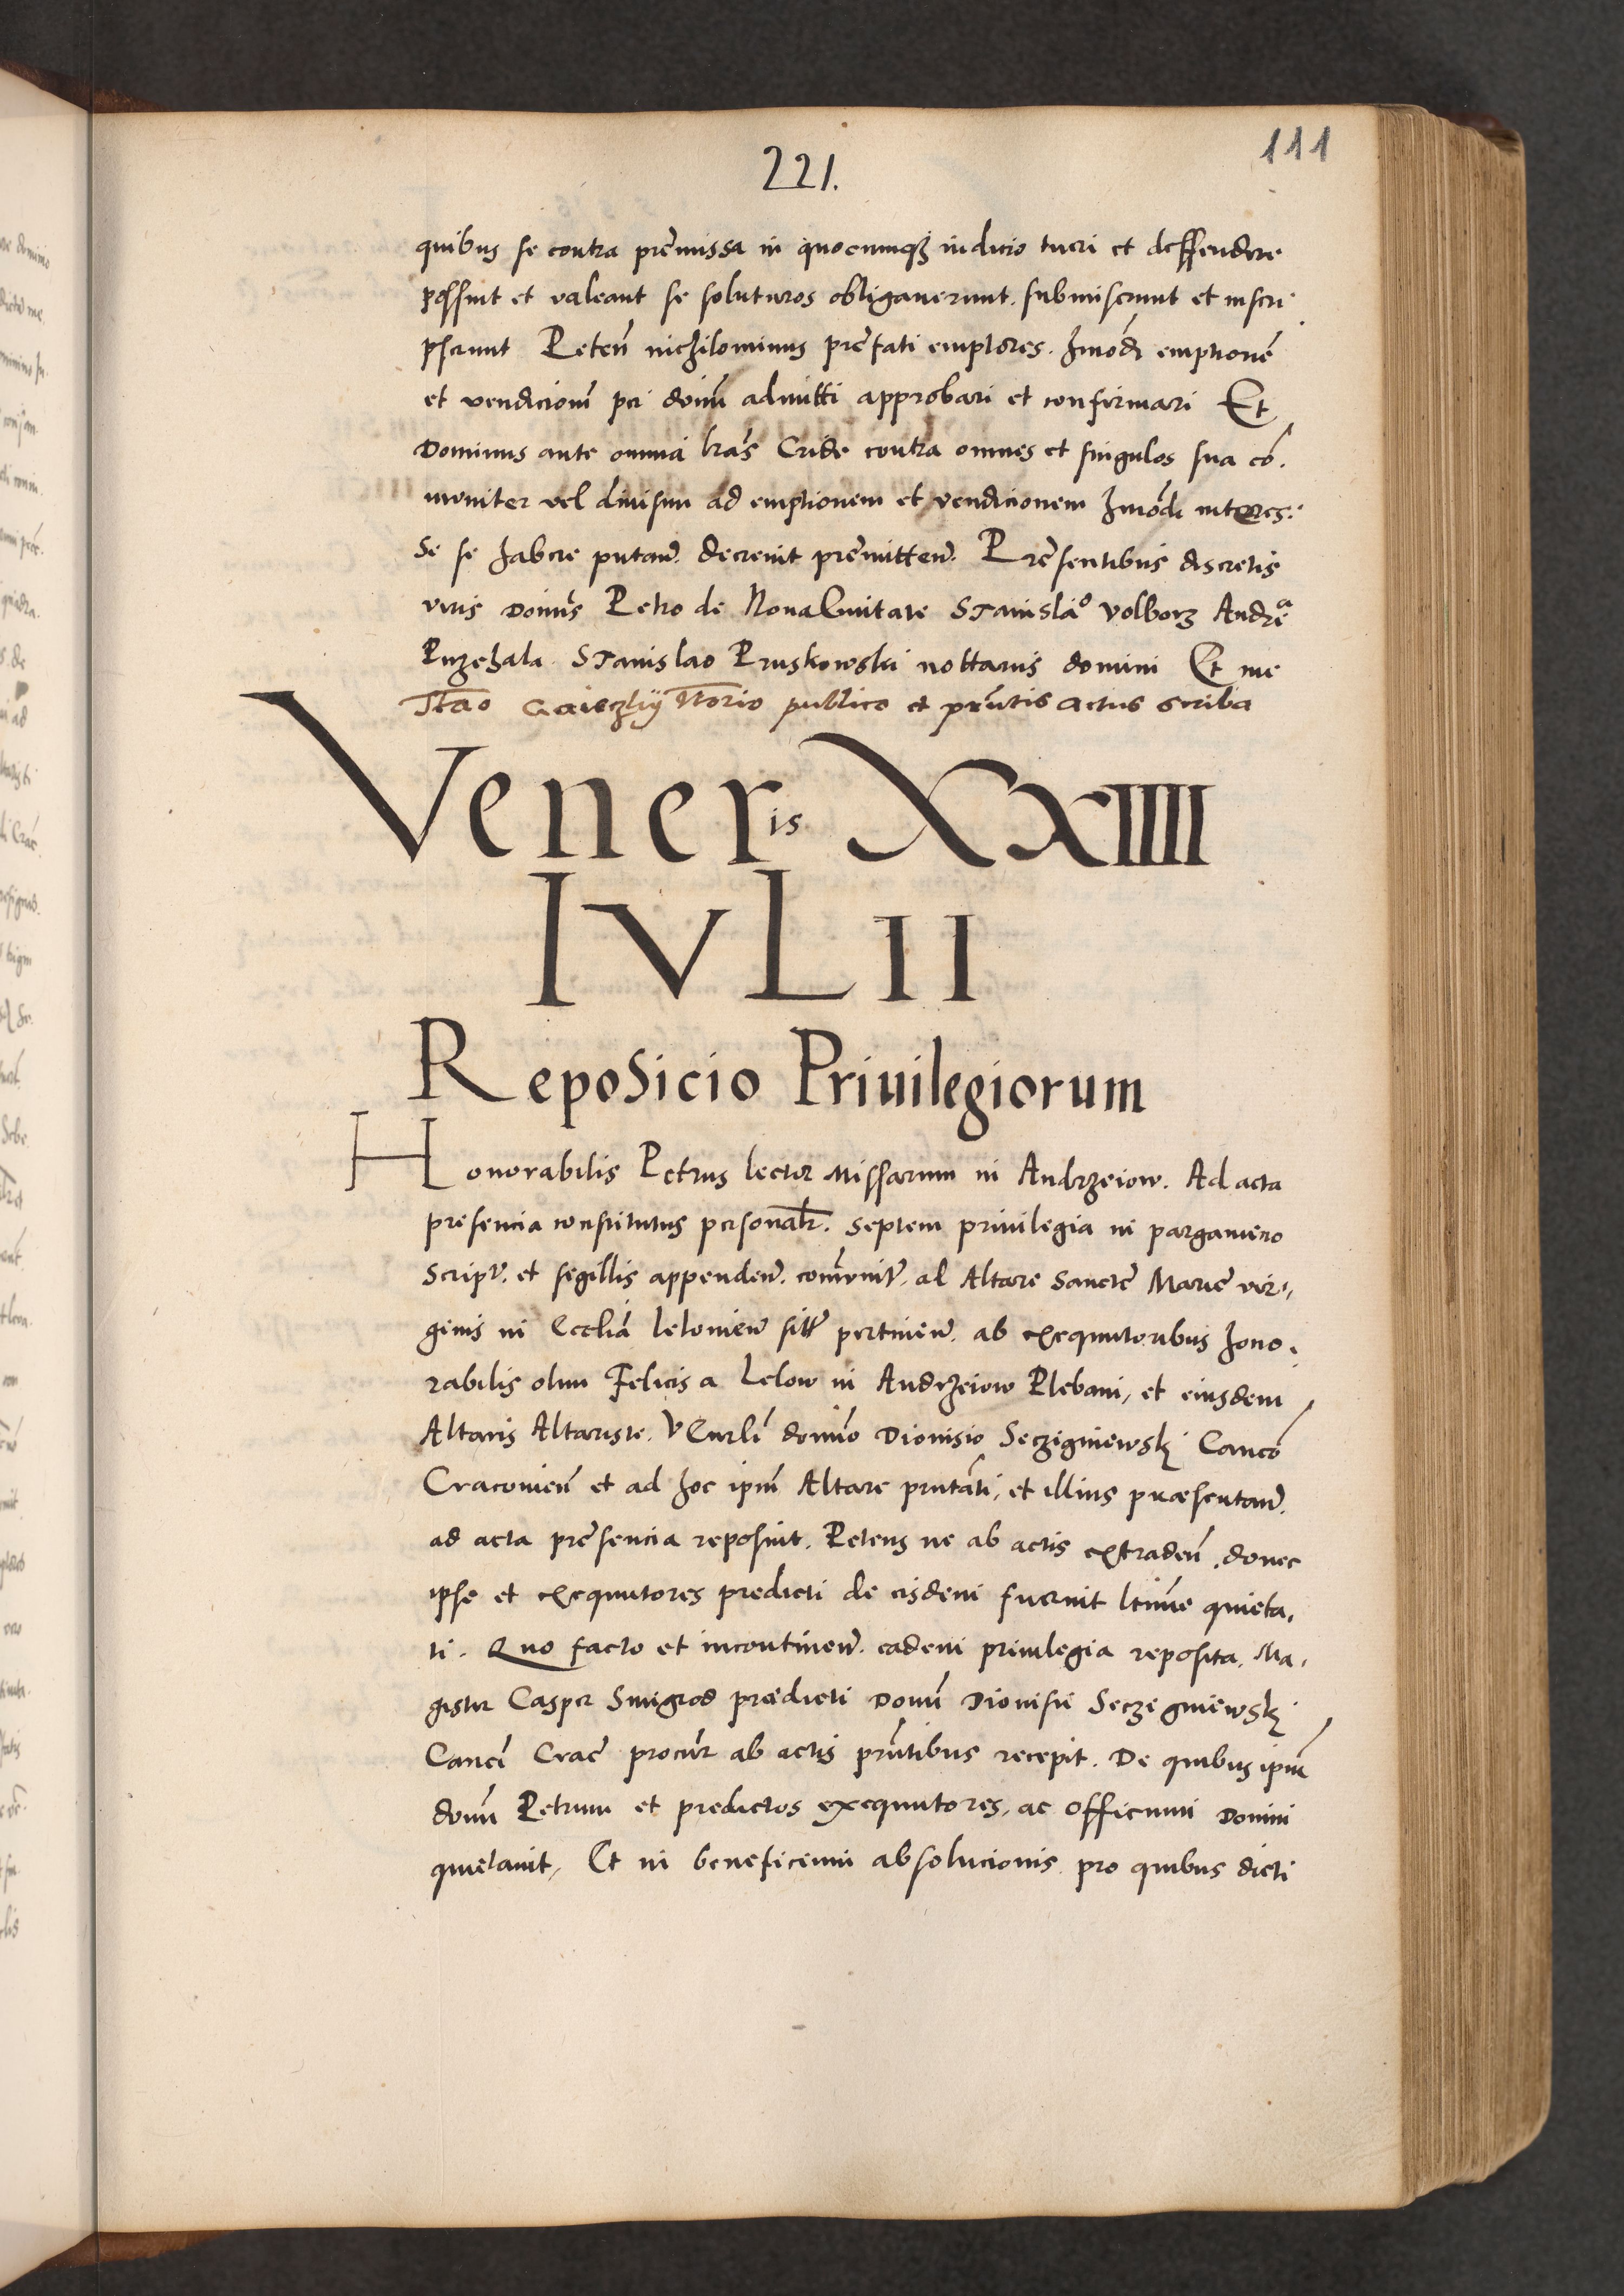 221.
111
quibus se contra premissa in quocunqȝ iudicio tueri et deffendere
possint et valeant se soluturos obligauerunt. submiserunt et inscri
pserunt Peteñ nichilominus prefati emptores. hmõdi emptionẽ
et vendicionẽ per doim̃ admitti approbari et confirmari Et
Dominus ante omnia lrãs Cride contra omnes et singulos sua cõ.
muniter vel diuisim ad emptionem et vendicionem hmõdi interes:
se se habere putañ. decreuit premitteñ. Presentibus discretis
viris Domĩs Petro de Noua Ciuitate Stanislaº Volborz Andreª
Puzehala Stanislao Pruskowski nottariis domini Et me
Stão Gaieczky Ntorio publico et pñtis actus scriba
Veneris XXIIII
IVLII
Reposicio Priuilegiorum
Honorabilis Petrus lector Missarum in Andrzeiow. Ad acta
presencia constitutus personalr̃. septem priuilegia in pargameno
script. et segillis appendeñ. comũnitr̃. al Altare Sancte Marie vir„
ginis in Eccliã lelouieñ sitt̃ pertineñ. ab exequutoribus hono.
rabilis olim Felicis a Lelow in Andrzeiow Plebani, et eiusdem
Altaris Altariste. Venrli domĩo Dionisio Seczigniewski Canco
Cracouieñ et ad hoc ipm̃ Altare pñtãti, et illius præsentañ.
ad acta presencia reposuit. Petens ne ab actis extradeñ. donec
ipse et exequutores predicti de eisdem fuerint ltime quieta.
ti. Quo facto et incontineñ. eadem priuilegia reposita. Ma.
gister Casper Smigrod prædicti Domĩ Dionisii Seczegniewski
Canci Crac̃ procur̃ ab actis pñtibus recepit. De quibus ipm̃
domũ Petrum et predictos exequutores, ac officium Domini
quietauit, Et in beneficium absolucionis pro quibus dicti